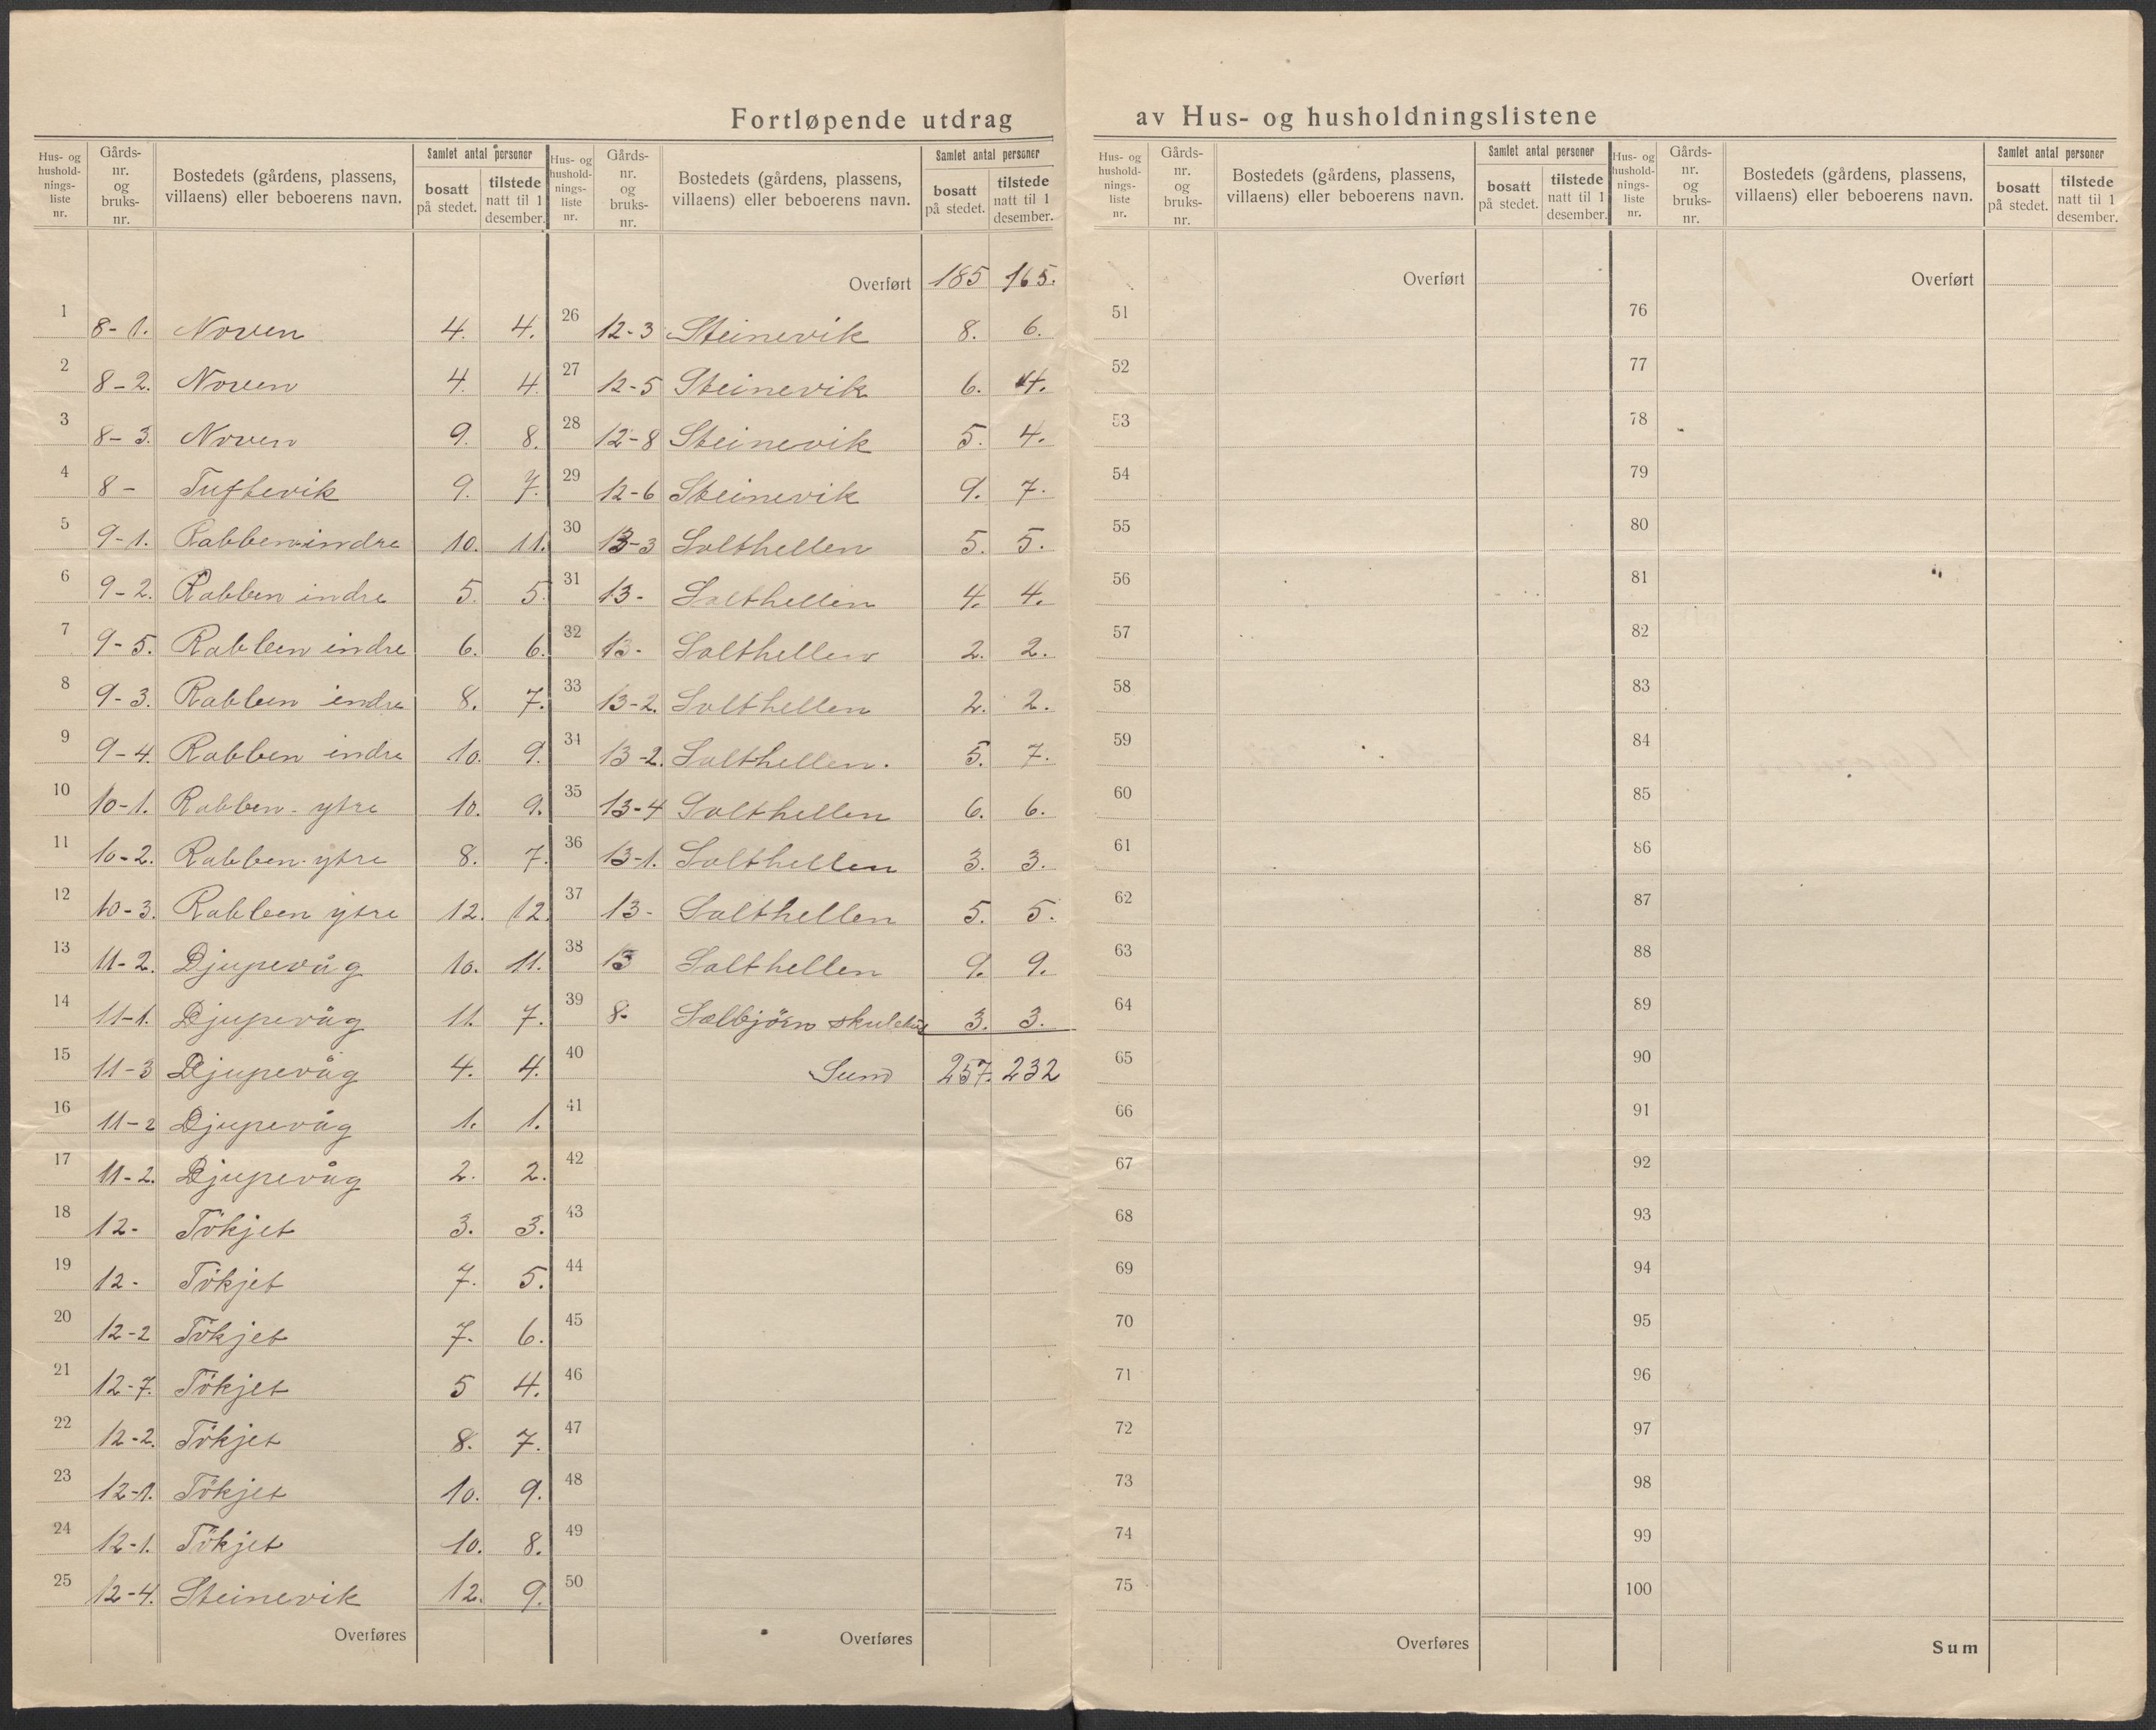 Fortløpende utdrag av Hus- og husholdningslistene
Hus- og hushold-nings-liste nr. | Gårds-nr. og bruks-nr. | Bostedets (gårdens, plassens, villaens) eller beboerens navn. | Samlet antal personer | bosatt på stedet. | tilstede natt til 1 desember.
1 8-1. Noven 4. 4.
2 8-2. Noven 4. 4
3 8-3. Noven 9. 8.
4 8- Tuftevik 9. 7.
5 9-1. Rabben indre 10. 11.
6 9-2. Rabben indre 5. 5
7 9-5. Rabben indre 6. 6.
8 9-3. Rabben indre 8. 7.
9 9-4. Rabben indre 10. 9.
10 10-1. Rabben-ytre 10. 9.
11 10-2. Rabben-ytre 8. 7.
12 10-3. Rabben ytre 12. 12
13 11-2. Djupevåg 10. 11.
14 11-1. Djupevåg 11. 7.
15 11-3 Djupevåg 4. 4.
16 11-2 Djupevåg 1. 1.
17 11-2. Djupevåg 2. 2.
18 12- Tökjet 3. 3.
19 12- Tökjet 7. 5.
20 12-2 Tökjet 7. 6.
21 12-7. Tökjet 5 4.
22 12-2. Tökjet 8. 7.
23 12-1. Tökjet 10. 9.
24 12-1. Tökjet 10. 8.
25 12-4. Steinevik 12. 9.
Overføres
Hus- og hushold-nings-liste nr. | Gårds-nr. og bruks-nr. | Bostedets (gårdens, plassens, villaens) eller beboerens navn. | Samlet antal personer | bosatt på stedet. | tilstede natt til 1 desember.
Overført 185 165.
26 12-3 Steinevik 8. 6.
27 12-5 Steinevik 6. 4.
28 12-8 Steinevik 5. 4.
29 12-6 Steinevik 9. 7.
30 13-3 Salthellen 5. 5.
31 13- Salthellen 4. 4.
32 13- Salthellen 2. 2.
33 13-2. Salthellen 2. 2.
34 13-2. Salthellen. 5. 7.
35 13-4 Salthellen 6. 6.
36 13-1. Salthellen 3. 3.
37 13- Salthellen 5. 5.
38 13 Salthellen 9. 9.
39 8- Salbjörn skulehus 3. 3.
40 Sum 257. 232
41
42
43
44
45
46
47
48
49
50
Overføres
Hus- og hushold-nings-liste nr. | Gårds-nr. og bruks-nr. | Bostedets (gårdens, plassens, villaens) eller beboerens navn. | Samlet antal personer | bosatt på stedet. | tilstede natt til 1 desember.
Overført
51
52
53
54
55
56
57
58
59
60
61
62
63
64
65
66
67
68
69
70
71
72
73
74
75
Overføres
Hus- og hushold-nings-liste nr. | Gårds-nr. og bruks-nr. | Bostedets (gårdens, plassens, villaens) eller beboerens navn. | Samlet antal personer | bosatt på stedet. | tilstede natt til 1 desember.
Overført
76
77
78
79
80
81
82
83
84
85
86
87
88
89
90
91
92
93
94
95
96
97
98
99
100
Sum